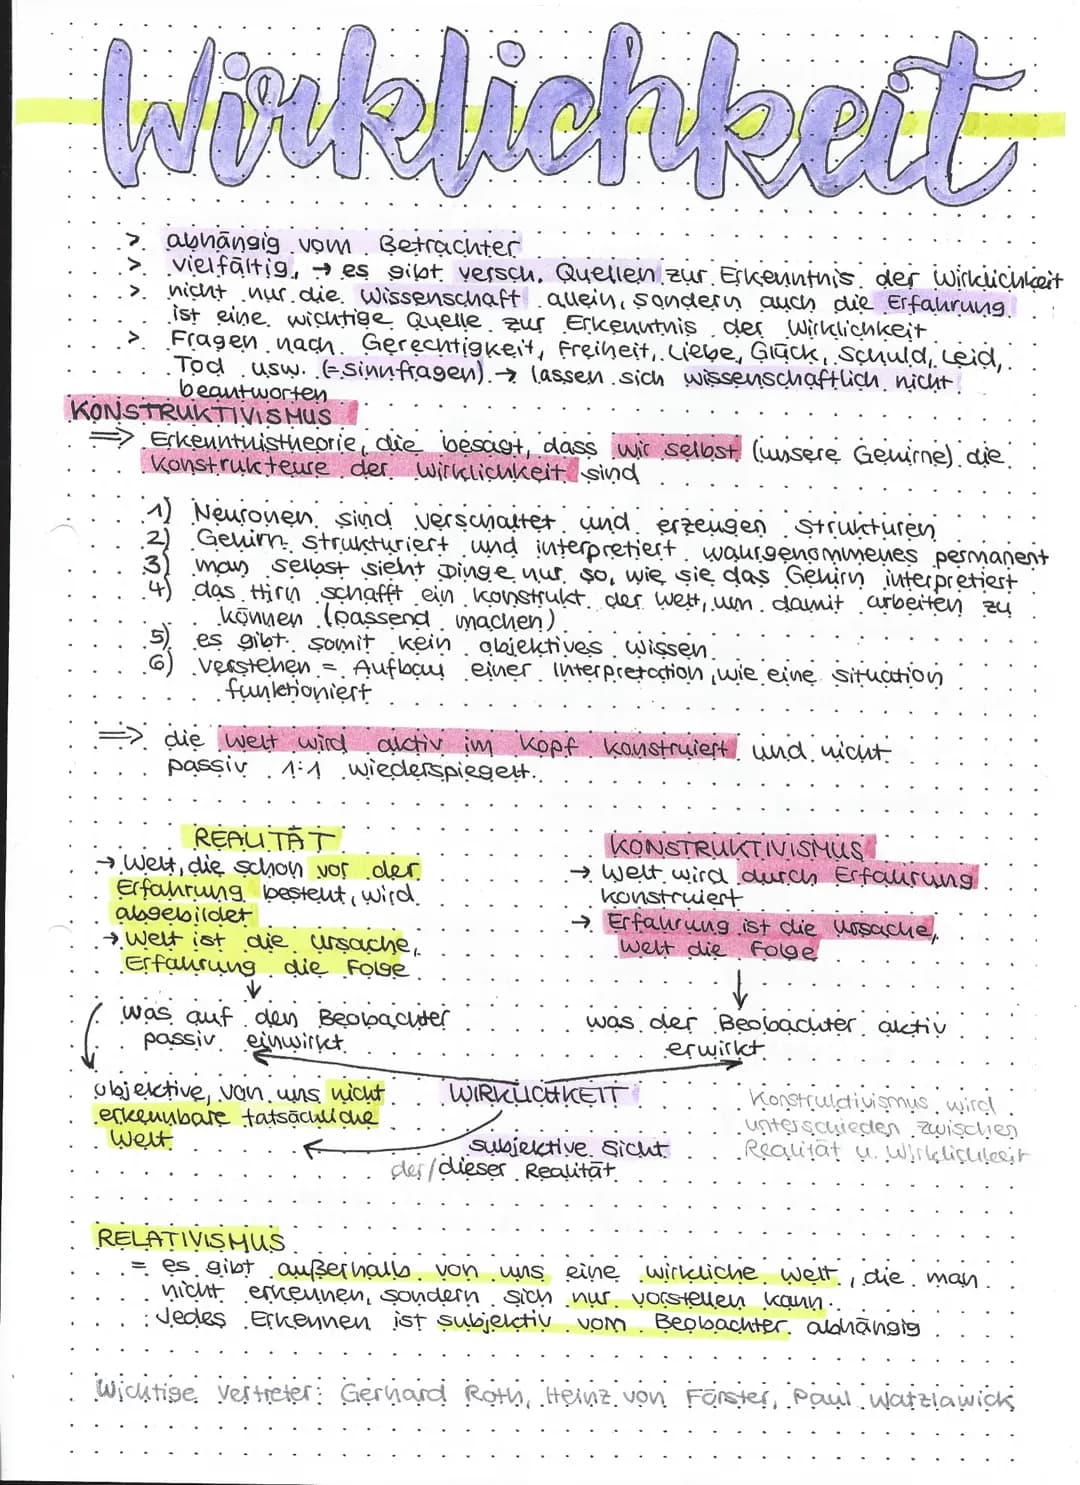 Wirklichkeit
> abhängig vom Betrachter
> vielfältig, → es gibt versch. Quellen zur Erkenntnis der Wirklichkeit
> nicht nur die Wissenschaft allein, sondern auch die Erfahrung
ist eine wichtige Quelle zur Erkenntnis der Wirklichkeit
> Fragen nach Gerechtigkeit, Freiheit, Liebe, Glück, Schuld, Leid,
Tod usw. (=Sinnfragen) → lassen sich wissenschaftlich nicht
beantworten
KONSTRUKTIVISMUS
⇒ Erkenntnistheorie, die besagt, dass wir selbst (unsere Gehirne) die
Konstrukteure der Wirklichkeit sind
1) Neuronen sind verschaltet und erzeugen Strukturen
2) Gehirn strukturiert und interpretiert wahrgenommenes permanent
3) man selbst sieht Dinge nur so, wie sie das Gehirn interpretiert
4) das Hirn schafft ein Konstrukt der Welt, um damit arbeiten zu
können (passend machen)
5) es gibt somit kein objektives Wissen
6) verstehen = Aufbau einer Interpretation, wie eine Situation
funktioniert
⇒ die Welt wird aktiv im Kopf konstruiert und nicht
passiv 1:1 wiederspiegelt.
REALITÄT
→ Welt, die schon vor der
Erfahrung besteht, wird
abgebildet
→ Welt ist die Ursache,
Erfahrung die Folge
↓
was auf den Beobachter
passiv einwirkt
objektive, von uns nicht
erkennbare tatsächliche
Welt
KONSTRUKTIVISMUS
→ Welt wird durch Erfahrung
konstruiert
→ Erfahrung ist die Ursache,
Welt die Folge
↓
was der Beobachter aktiv
erwirkt
WIRKLICHKEIT
subjektive Sicht
der/dieser Realität
Konstruktivismus wird
unterschieden zwischen
Realität u. Wirklichkeit
RELATIVISMUS
= es gibt außerhalb von uns eine wirkliche Welt, die man
nicht erkennen, sondern sich nur vorstellen kann.
: Jedes Erkennen ist subjektiv vom Beobachter abhängig
Wichtige Vertreter: Gerhard Roth, Heinz von Förster, Paul Watzlawick